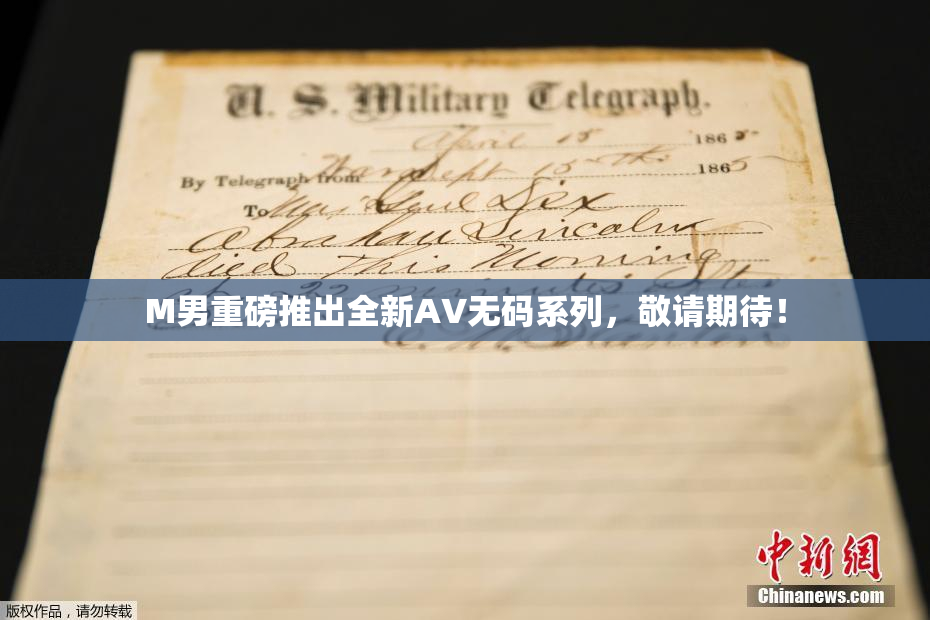 U. S. Military Telegraph.
April 15 1865
By Telegraph from War Dept 15th 1865
To Maj Genl Dix
Abraham Lincoln
died This Morning
at 22 minutes after
M男重磅推出全新AV无码系列，敬请期待！
E. M. Stanton
中新網
Chinanews.com
版权作品，请勿转载